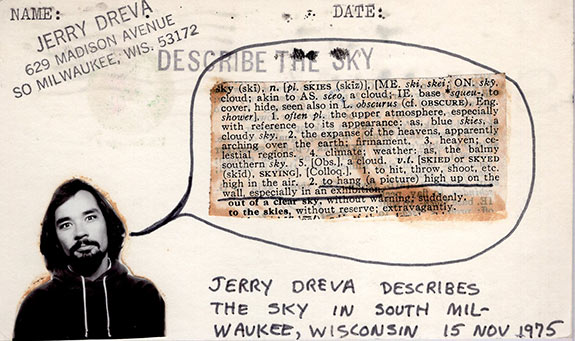 NAME: DATE:
JERRY DREVA
629 MADISON AVENUE
SO MILWAUKEE, WIS. 53172
DESCRIBE THE SKY
sky (ski), n. [pl. SKIES (skiz)], [ME. ski, skei; ON. sky,
cloud; akin to AS. sceo, a cloud; IE. base *squeu-, to
cover, hide, seen also in L. obscurus (cf. OBSCURE), Eng.
shower]. 1. often pl. the upper atmosphere, especially
with reference to its appearance: as, blue skies, a
cloudy sky. 2. the expanse of the heavens, apparently
arching over the earth; firmament. 3. heaven; ce-
lestial regions. 4. climate; weather: as, the balmy
southern sky. 5. [Obs.], a cloud. v.t. [SKIED or SKYED
(skid), SKYING], [Colloq.], 1. to hit, throw, shoot, etc.
high in the air. 2. to hang (a picture) high up on the
wall, especially in an exhibition.
out of a clear sky, without warning; suddenly.
to the skies, without reserve; extravagantly.
JERRY DREVA DESCRIBES
THE SKY IN SOUTH MIL-
WAUKEE, WISCONSIN 15 NOV 1975